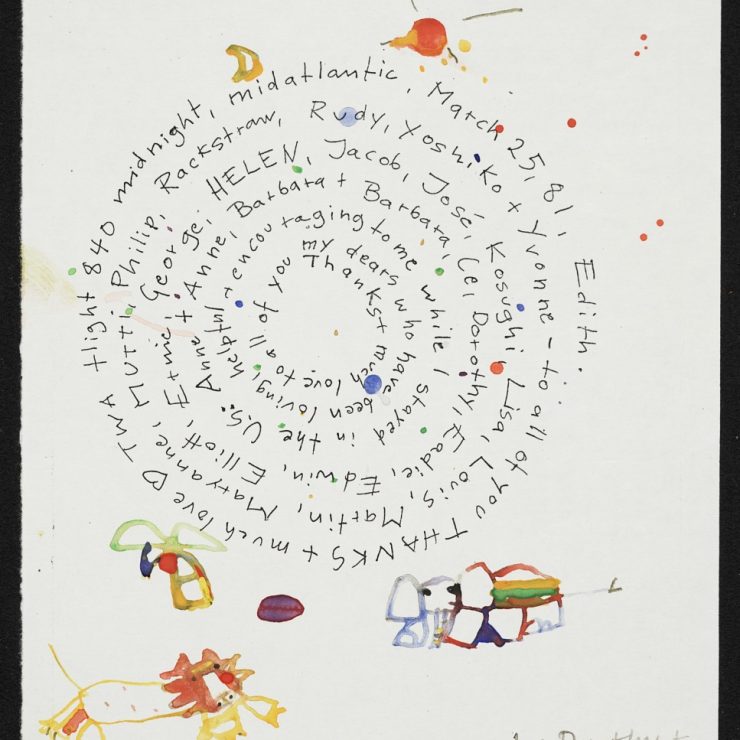 Thanks + much love to all of you my dears who have been loving, helpful + encouraging to me while I stayed in the U.S.: Anne + Anne, Barbara + Barbara, Cei, Dorothy, Eadie, Edwin, Elliott, Ernie, George, HELEN, Jacob, José, Kosughi, Lisa, Lovis, Martin, Maryanne, MUTTI, Philip, Rackstraw, Rudy, Yoshiko + Yvonne – to all of you THANKS + much love ♡ TWA flight 840 midnight, midatlantic, March 25, 81, Edith.